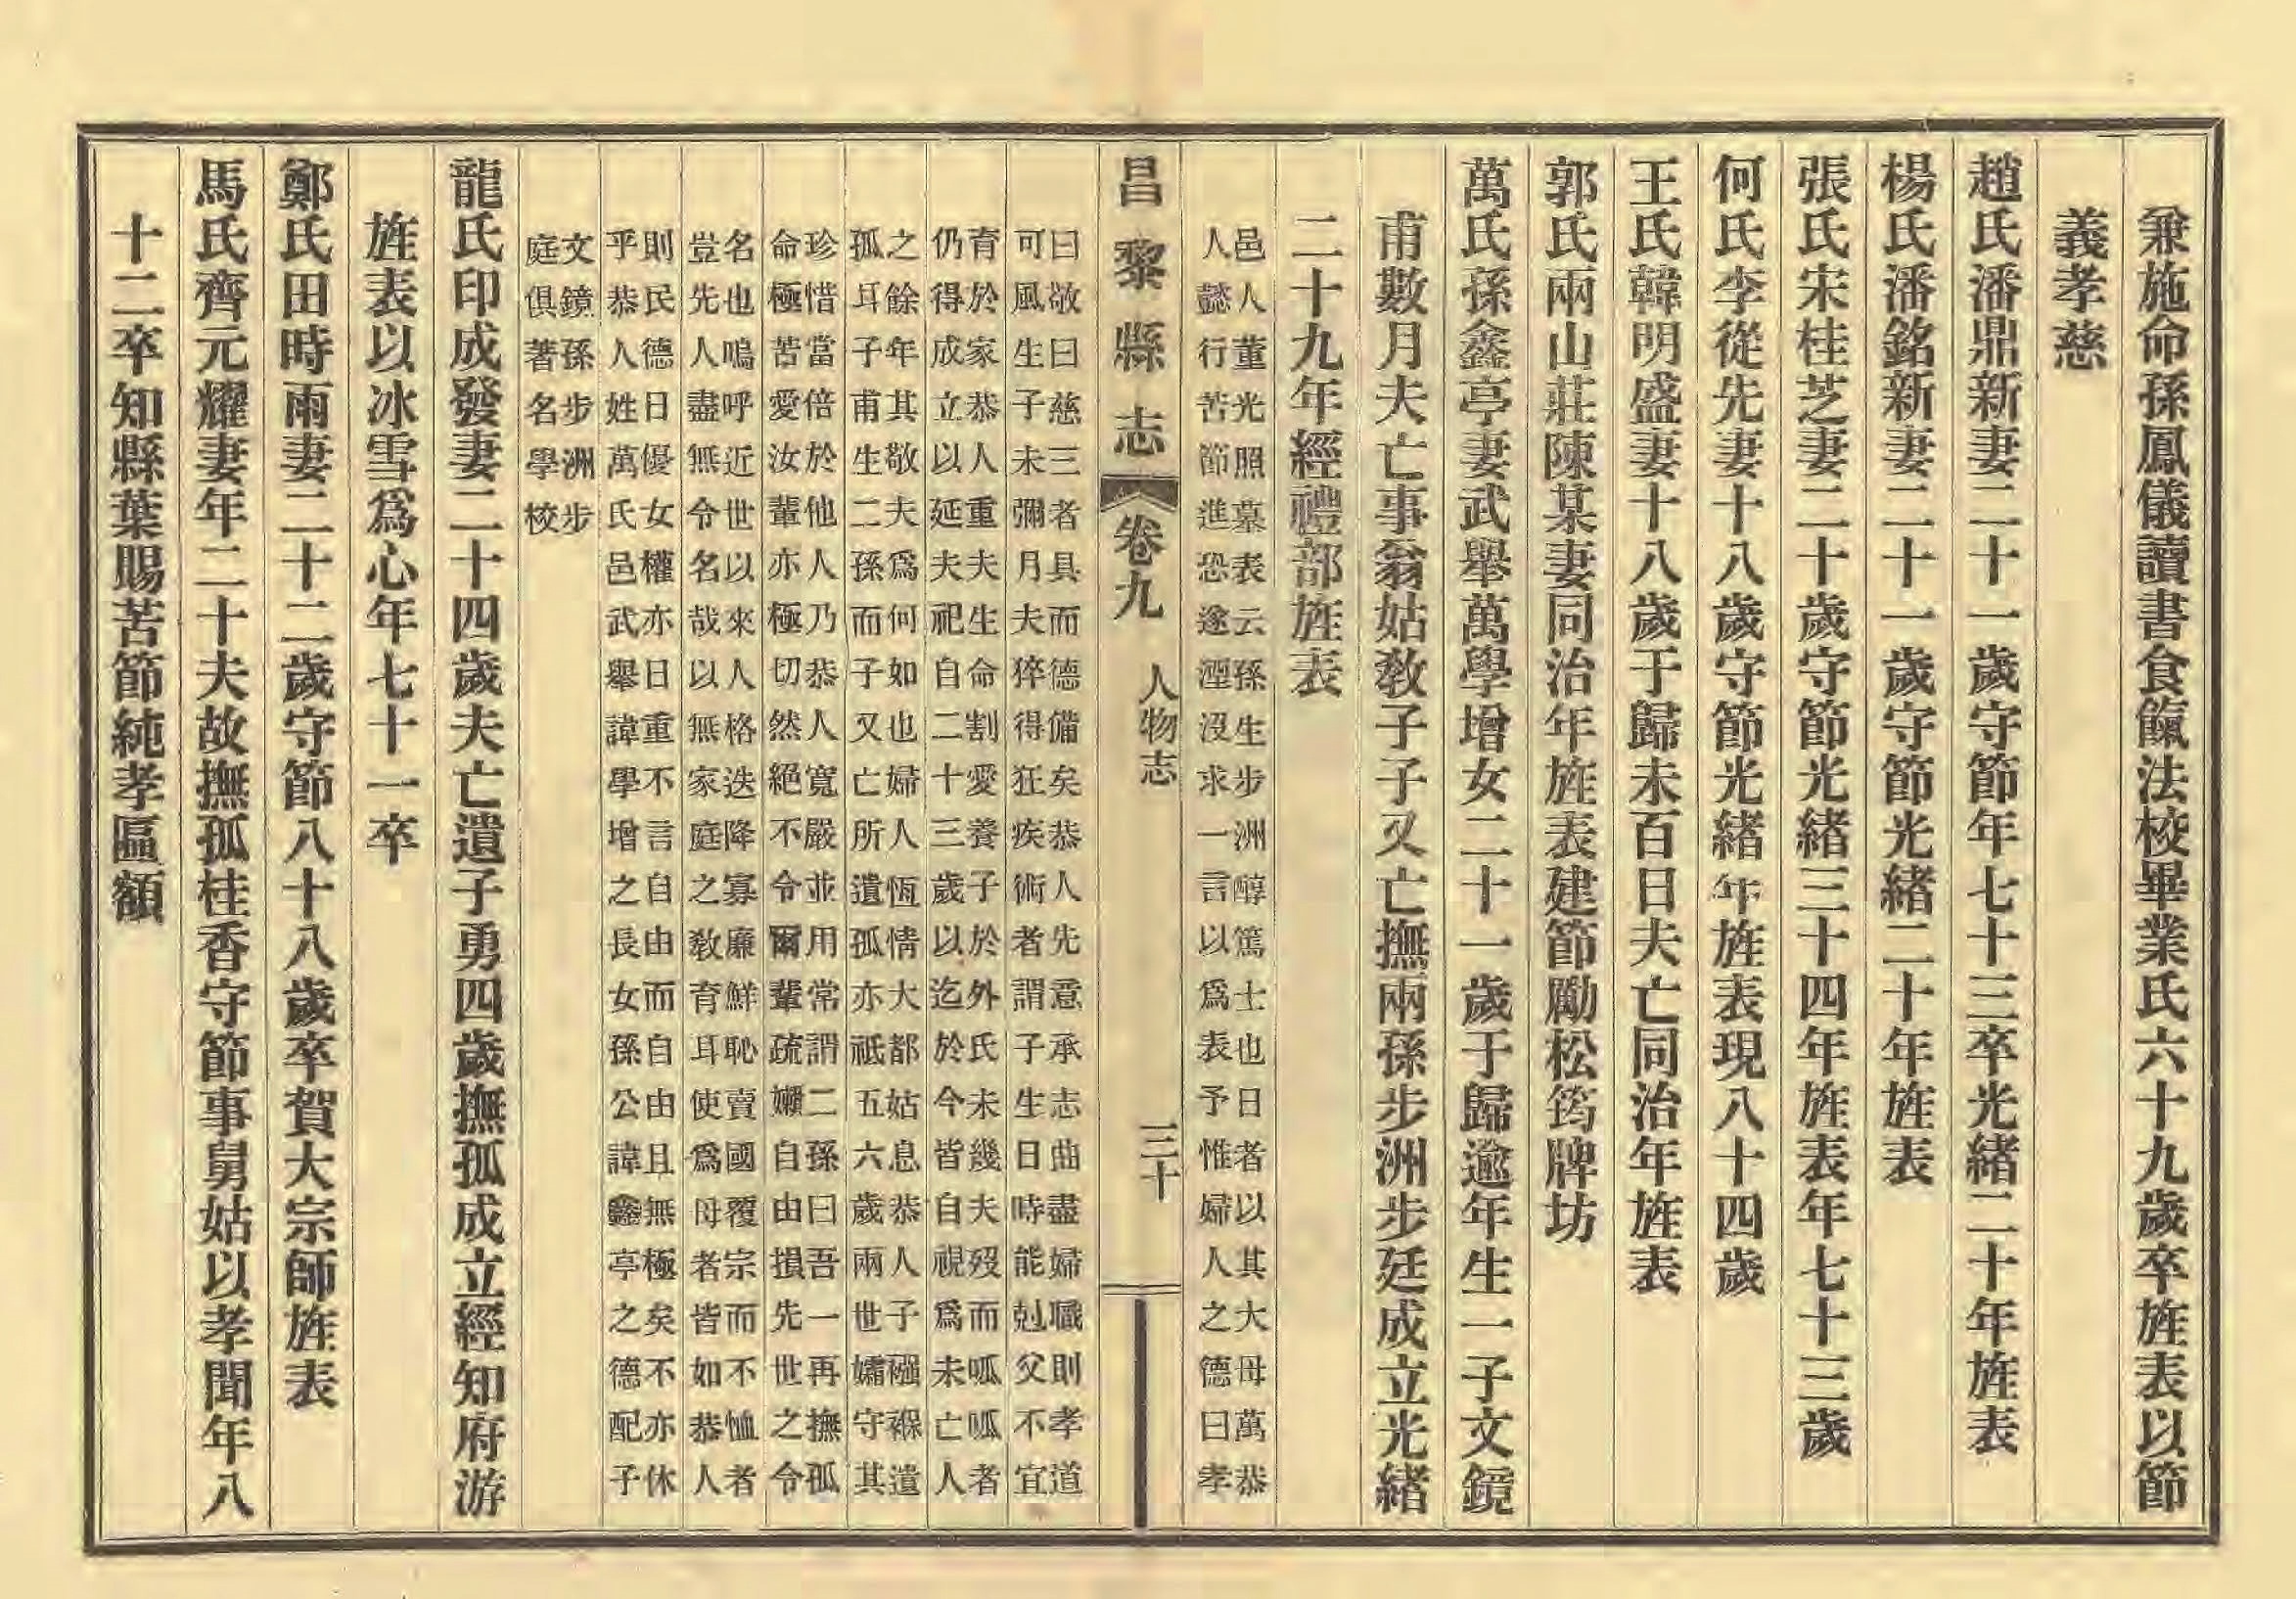 兼施命孫鳳儀讀書食餼法校畢業氏六十九歲卒旌表以節
義孝慈
趙氏潘鼎新妻二十一歲守節年七十三卒光緒二十年旌表
楊氏潘銘新妻二十一歲守節光緒二十年旌表
張氏宋桂芝妻二十歲守節光緒三十四年旌表年七十三歲
何氏李從先妻十八歲守節光緒年旌表現八十四歲
王氏韓明盛妻十八歲于歸未百日夫亡同治年旌表
郭氏兩山莊陳某妻同治年旌表建節勵松筠牌坊
萬氏孫鑫亭妻武舉萬學增女二十一歲于歸逾年生一子文鏡
甫數月夫亡事翁姑敎子子又亡撫兩孫步洲步廷成立光緒
二十九年經禮部旌表
邑人董光照墓表云孫生步洲醇篤士也日者以其大母萬恭
人懿行苦節進恐遂湮沒求一言以爲表予惟婦人之德曰孝
昌黎縣志 卷九 人物志 三十
曰敬曰慈三者具而德備矣恭人先意承志曲盡婦職則孝道
可風生子未彌月夫猝得狂疾術者謂子生日時能尅父不宜
育於家恭人重夫生命割愛養子於外氏未幾夫歿而呱呱者
仍得成立以延夫祀自二十三歲以迄於今皆自視爲未亡人
之餘年其敬夫爲何如也婦人恆情大都姑息恭人子襁褓遺
孤耳子甫生二孫而子又亡所遺孤亦祗五六歲兩世孀守其
珍惜當倍於他人乃恭人寬嚴並用常謂二孫曰吾一再撫孤
命極苦愛汝輩亦極切然絕不令爾輩疏嬾自由損先世之令
名也嗚呼近世以來人格迭降寡廉鮮恥賣國覆宗而不恤者
豈先人盡無令名哉以無家庭之敎育耳使爲母者皆如恭人
則民德日優女權亦日重不言自由而自由且無極矣不亦休
乎恭人姓萬氏邑武舉諱學增之長女孫公諱鑫亭之德配子
文鏡孫步洲步
庭俱著名學校
龍氏印成發妻二十四歲夫亡遺子勇四歲撫孤成立經知府游
旌表以冰雪爲心年七十一卒
鄭氏田時雨妻二十二歲守節八十八歲卒賀大宗師旌表
馬氏齊元耀妻年二十夫故撫孤桂香守節事舅姑以孝聞年八
十二卒知縣葉賜苦節純孝匾額